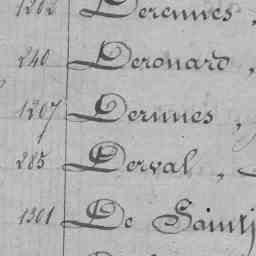 1202 Derennes,
240 Derouard,
1207 Dermes,
285 Derval,
1301 De Saint